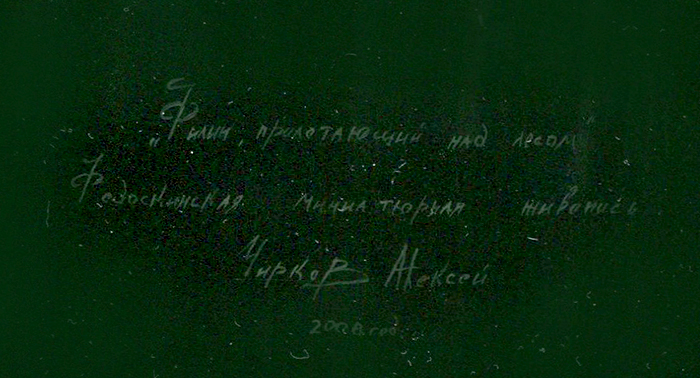 „Филин, пролетающий над лесом"
Федоскинская миниатюрная живопись
Чирков Алексей
год